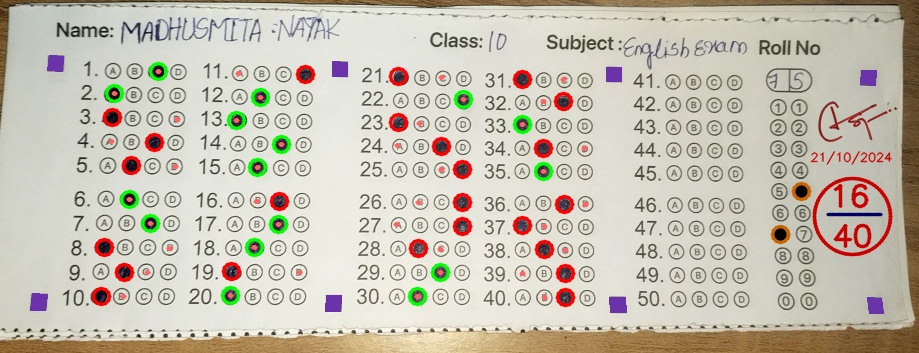 Name: MADHUSMITA NAYAK
Class: 10
Subject: English Exam
Roll No
7 5
1. A B D
2. B C D
3. B C D
4. A B D
5. A C D
6. A C D
7. A B D
8. B C D
9. A C D
10. B C D
11. A B C
12. A C D
13. B C D
14. A B D
15. A C D
16. A B D
17. A B D
18. A C D
19. B C D
20. B C D
21. B C D
22. A B C
23. B C D
24. A B D
25. A B C
26. A B C
27. A B C
28. A C D
29. A B D
30. A C D
31. B C D
32. A B D
33. B C D
34. A C D
35. A C D
36. A B D
37. B C D
38. A C D
39. A B D
40. A B D
41. A B C D
42. A B C D
43. A B C D
44. A B C D
45. A B C D
46. A B C D
47. A B C D
48. A B C D
49. A B C D
50. A B C D
1 1
2 2
3 3
4 4
5
6 6
7
8 8
9 9
0 0
21/10/2024
16
40